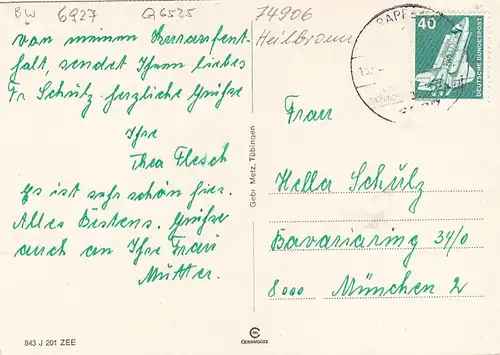 BW 6927 Q6525
74906
Heilbronn
von meinem Kuraufent-
halt, sendet Ihnen liebes
Fr Schulz herzliche Grüße
Ihre
Thea Flesch
Es ist sehr schön hier.
Alles Bestens. Grüße
auch an Ihre Frau
Mutter.
843 J 201 ZEE
Gebr. Metz, Tübingen
CHROMOLUX
BAPPE
40
DEUTSCHE BUNDESPOST
Frau
Hella Schulz
Bavariaring 34/0
8000 München 2